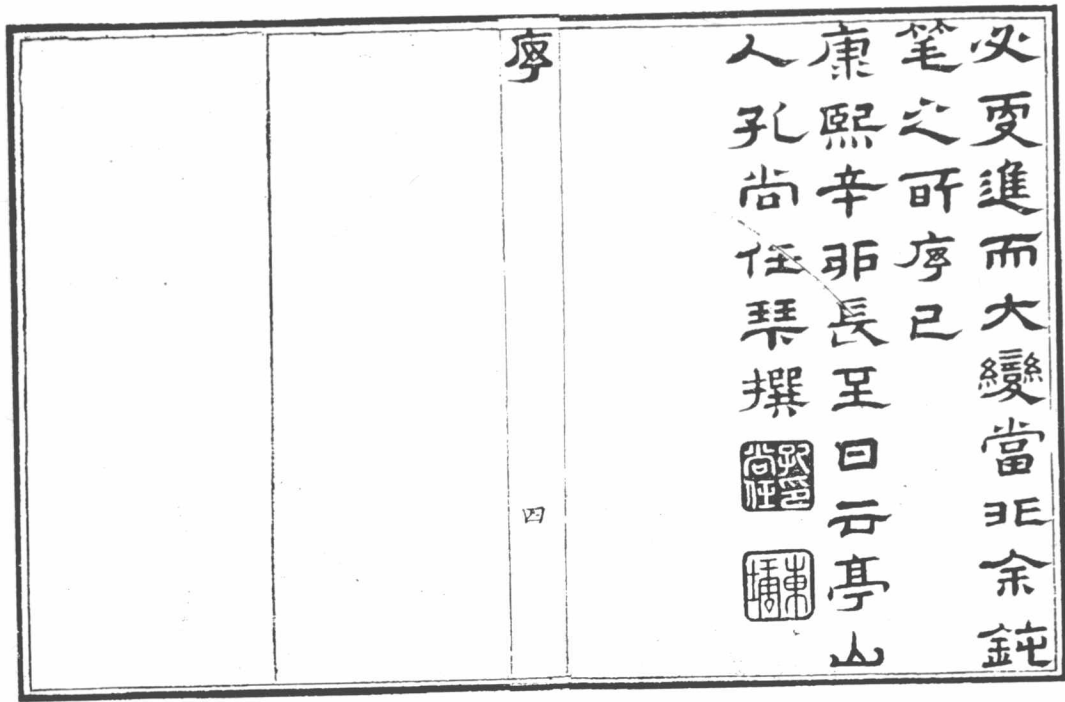 必更進而大變當非余鈍
笔之所序已
康熙辛卯長至日云亭山
人孔尚任琹撰
孔印尚任
東塘
序
四